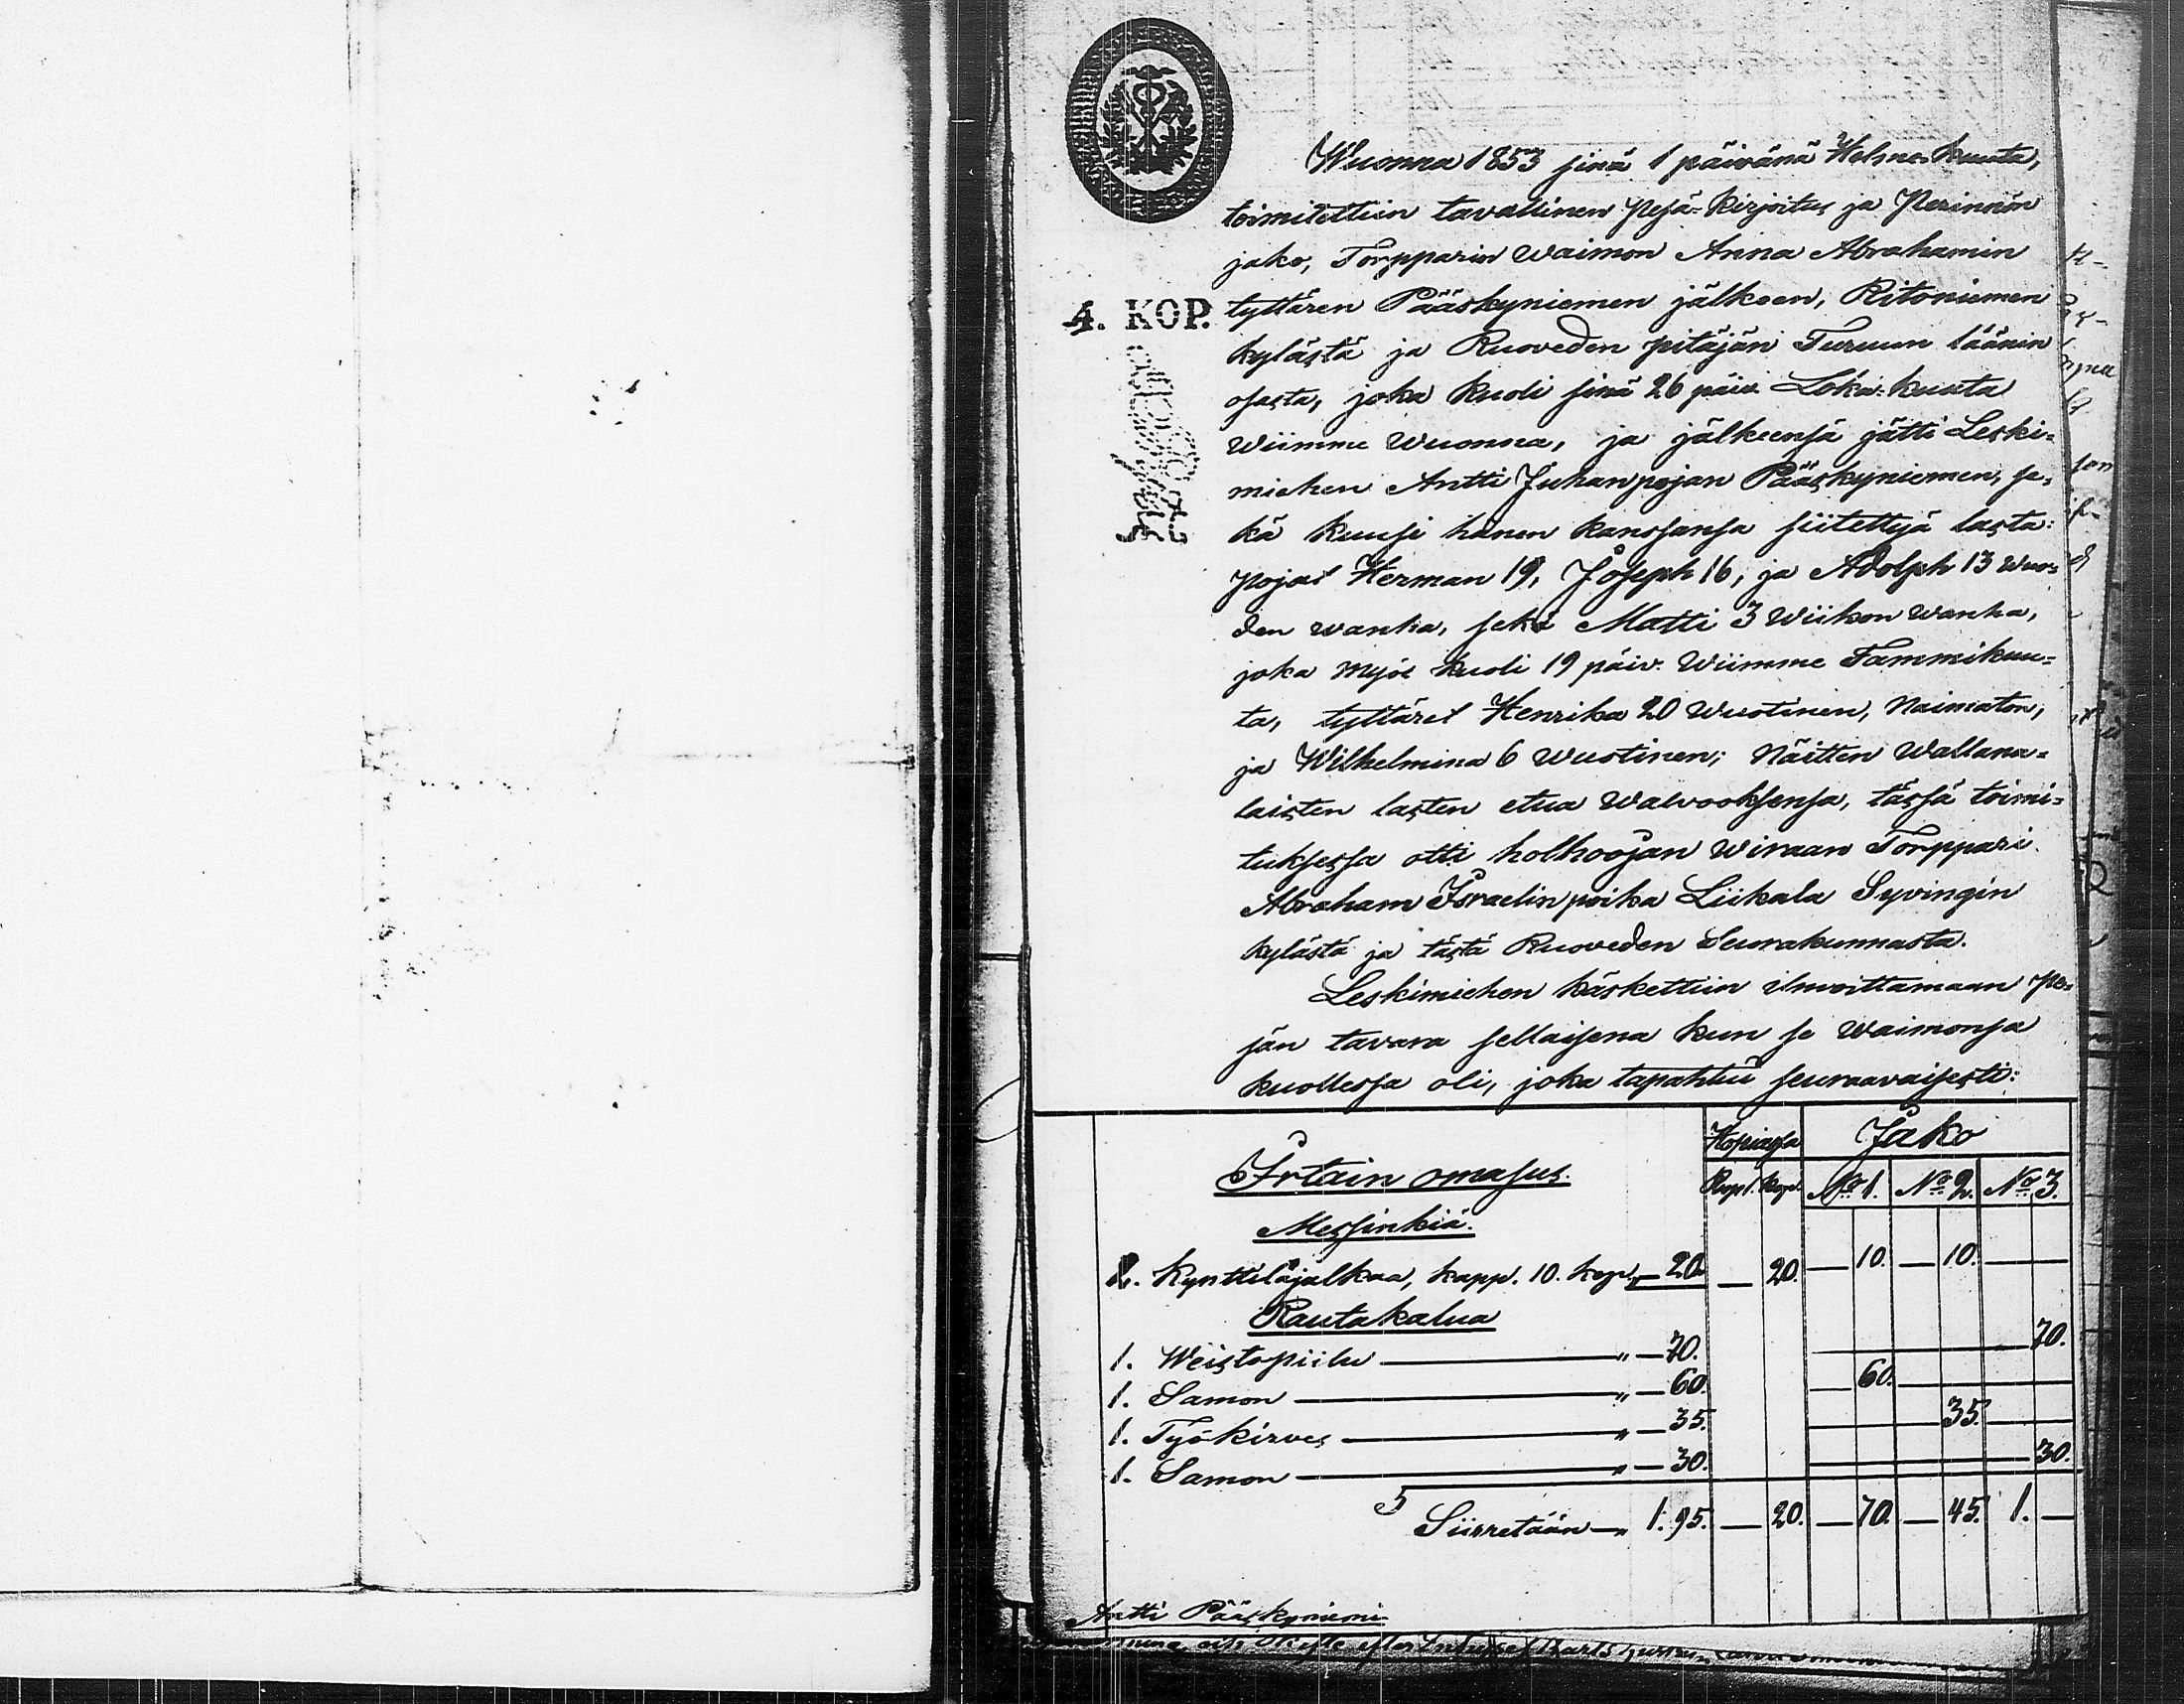 Wuonna 1853 sinä 1 päivänä Helme-kuuta,
toimitettiin tavallinen Pesä-kirjoitus ja Perinnön
jako, Torpparin Waimon Anna Abrahamin
4. KOP. tyttären Pääskyniemen jälkeen, Ritoniemen
kylästä ja Ruoveden pitäjän Turuun läänin
osasta, joka kuoli sinä 26 päiv. Loka-kuuta
Wiimme Wuonna, ja jälkeensä jätti Leski-
miehen Antti Juhanpojan Pääskyniemen, se-
kä kuusi hänen kanssansa siitettyä lasta:
Pojat Herman 19, Joseph 16, ja Adolph 13 Wuo-
den wanha, sekä Matti 3 Wiikon Wanha,
joka myös kuoli 19 päiv. Wiimme Tammikuu-
ta, tyttäret Henrika 20 Wuotinen, Naimaton,
ja Wilhelmina 6 Wuotinen; Näitten Wallana-
laisten lasten etua Walvooksensa, tässä toimi-
tuksessa otti holhoojan Wiraan Torppari
Abraham Israelin poika Liikala Syvingin
kylästä ja tästä Ruoveden Seurakunnasta.
Leskimiehen käskettiin ilmoittamaan Pe-
sän tavara sellaisena kun se Waimonsa
kuollessa oli, joka tapahtui seuraavaisesti:
Irtain omasus. Hopiassa Jako
Rupl. kop. No 1. No 2. No 3.
Messinkiä.
2. Kynttiläjalkaa, kapp. 10. kop. „ — 20. — 20. — 10. — 10. —
Rautakalua
1. Weistopiilu — „ — 70. — 70.
1. Samon — „ — 60. — 60. —
1. Työkirves — „ — 35. — 35. —
1. Samon — „ — 30. — 30.
5
Siirretään — „ 1. 95. — 20. — 70. — 45. 1. —
Antti Pääskyniemi